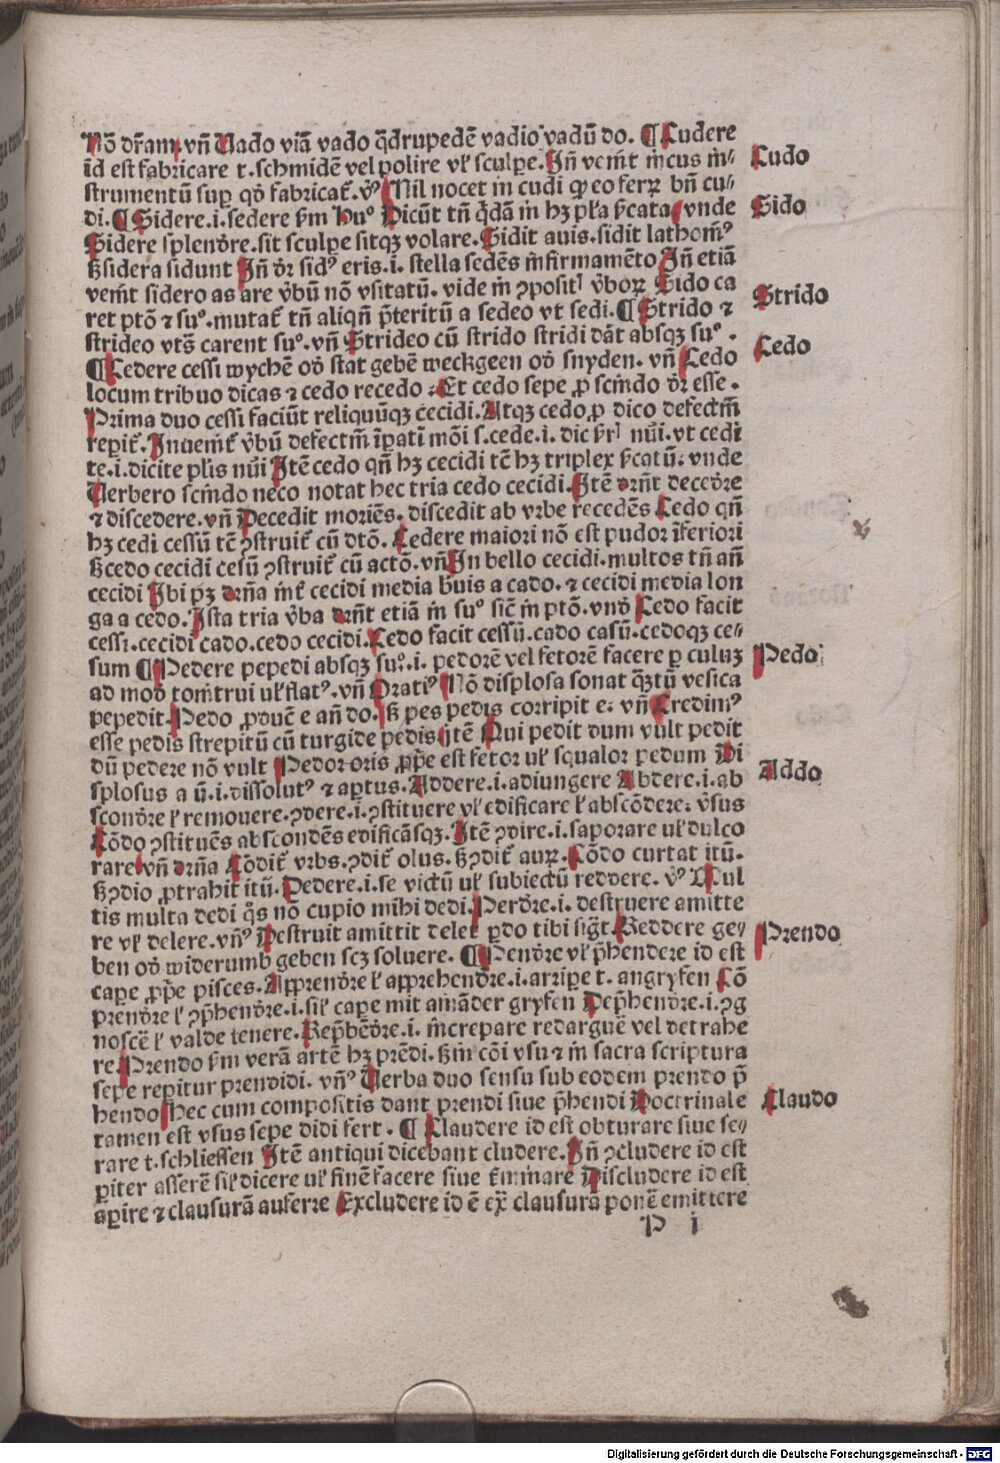 Nō dr̄am vn̄ Uado viā vado q̄drupedē vadioꝰ vadū do. ¶ Cudere
id est fabricare t. schmidē vel polire vl̕ sculpe. Jn̄ vem̄t incus in⸗
strumentū sup qd̕ fabricat̄. v̕ꝰ Nil nocet in cudi ꝙ eo ferꝝ bn̄ cu⸗
di. ¶ Sidere .i. sedere km̄ Huꝰ Dicūt tn̄ q̄dā in hꝫ pl̕a k̄cata vnde
Sidere splendr̕e. sit sculpe sitqꝫ volare. Sidit auis. sidit lathom̄ꝰ
ß sidera sidunt Jn̄ dr̄ sidꝰ eris .i. stella sedēs in firmamēto Jn̄ etiā
vem̄t sidero as are v̕bū nō vsitatū. vide in ꝯposit̕ v̕boꝝ Sido ca
ret ptō ⁊ suꝰ. mutat̄ tn̄ aliqn̄ p̄teritū a sedeo vt sedi. ¶ Strido ⁊
strideo vtꝰ carent suꝰ. vn̄ Strideo cū strido stridi dāt absqꝫ suꝰ.
¶ Cedere cessi wychē od̕ stat gebē weckgeen od̕ snyden. vn̄ Cedo
locum tribuo dicas ⁊ cedo recedo : Et cedo sepe ꝓ scindo dr̄ esse.
Prima duo cessi faciūt reliquūqꝫ cecidi. Atqꝫ cedo ꝓ dico defectiū
reꝑit̄. Jnuem̄t̄ v̕bū defectiū īpatī mōi s. cede .i. dic k̄r̄ nūi. vt cedi
te .i. dicite pl̕is nūi Jtē cedo qn̄ hꝫ cecidi tē hꝫ triplex k̄catū. vnde
Uerbero scindo neco notat hec tria cedo cecidi. Jtē dr̄nt decedr̕e
⁊ discedere. vn̄ Decedit moriēs. discedit ab vrbe recedēs Cedo qn̄
hꝫ cedi cessū tē ꝯstruit̄ cū dtō. Cedere maiori nō est pudor īferiori
ß cedo cecidi cesū ꝯstruit̄ cū actō. vn̄ Jn bello cecidi. multos tn̄ an̄
cecidi Jbi pꝫ dr̄na int̄ cecidi media b̕uis a cado. ⁊ cecidi media lon
ga a cedo. Jsta tria v̕ba dr̄nt etiā in suꝰ sic̄ in ptō. vnd̕ Cedo facit
cessi. cecidi cado. cedo cecidi. Cedo facit cessū. cado casū. cedoqꝫ ce⸗
sum ¶ Pedere pepedi absqꝫ suꝰ .i. pedorē vel fetorē facere ꝑ culuꝫ
ad mod̕ tom̄trui ul̕ flatꝰ. vn̄ Oratiꝰ Nō displosa sonat q̄ꝫtū vesica
pepedit. Pedo ꝓducē e an̄ do. ß pes pedis corripit e. vn̄ Credimꝰ
esse pedis strepitū cū turgide pedis Jtē Qui pedit dum vult pedit
dū pedere nō vult Pedor oris ꝓp̄e est fetor ul̕ squalor pedum Di
splosus a ū .i. dissolutꝰ ⁊ aꝑtus. Addere .i. adiungere Abdere .i. ab
scondr̕e l̕ remouere. ꝯdere .i. ꝯstituere vl̕ edificare l̕ abscōdere. v̕sus
Cōdo ꝯstituēs abscondēs edificāsqꝫ. Jtē ꝯdire .i. saporare ul̕ dulco
rare vn̄ dr̄na Cōdit̄ vrbs. ꝯdit̄ olus. ß ꝯdit̄ auꝝ. Cōdo curtat itū.
ß ꝯdio ꝓtrahit itū. Dedere .i. se victū ul̕ subiectū reddere. v̕ꝰ Mul
tis multa dedi q̄s nō cupio mihi dedi. Perdr̕e .i. destruere amitte
re vl̕ delere. vn̄ꝰ Destruit amittit delet ꝑdo tibi siḡt. Reddere ge⸗
ben od̕ widerumb geben scꝫ soluere. ¶ Pendr̕e vl̕ p̄hendere id est
capere ꝓp̄e pisces. Apprendr̕e l̕ apprehendr̕e .i. arripe t. angryfen Cō
prendr̕e l̕ ꝯp̄hendr̕e .i. sil̕ capere mit aināder gryfen Dep̄hendr̕e .i. ꝯg
noscē l̕ valde tenere. Rep̄hēdr̕e .i. increpare redarguē vel detrahe
re. Prendo km̄ verā artē hꝫ prēdi. ßm̄ cōi vsu ⁊ in sacra scriptura
sepe reꝑitur prendidi. vn̄ꝰ Uerba duo sensu sub eodem prendo p̄
hendo Hec cum compositis dant prendi siue p̄hendi Doctrinale
tamen est vsus sepe didi fert. ¶ Claudere id est obturare siue se⸗
rare t. schliessen Jtē antiqui dicebant cludere. Jn̄ ꝯcludere id est
ꝑiter asserē sil̕ dicere ul̕ finē facere siue t̄minare Discludere id est
aꝑire ⁊ clausurā auferre Excludere id ē ex̄ clausurā ponē emittere
P i
Cudo
Sido
Strido
Cedo
Pedo
Addo
Prendo
Claudo
Digitalisierung gefördert durch die Deutsche Forschungsgemeinschaft - DFG